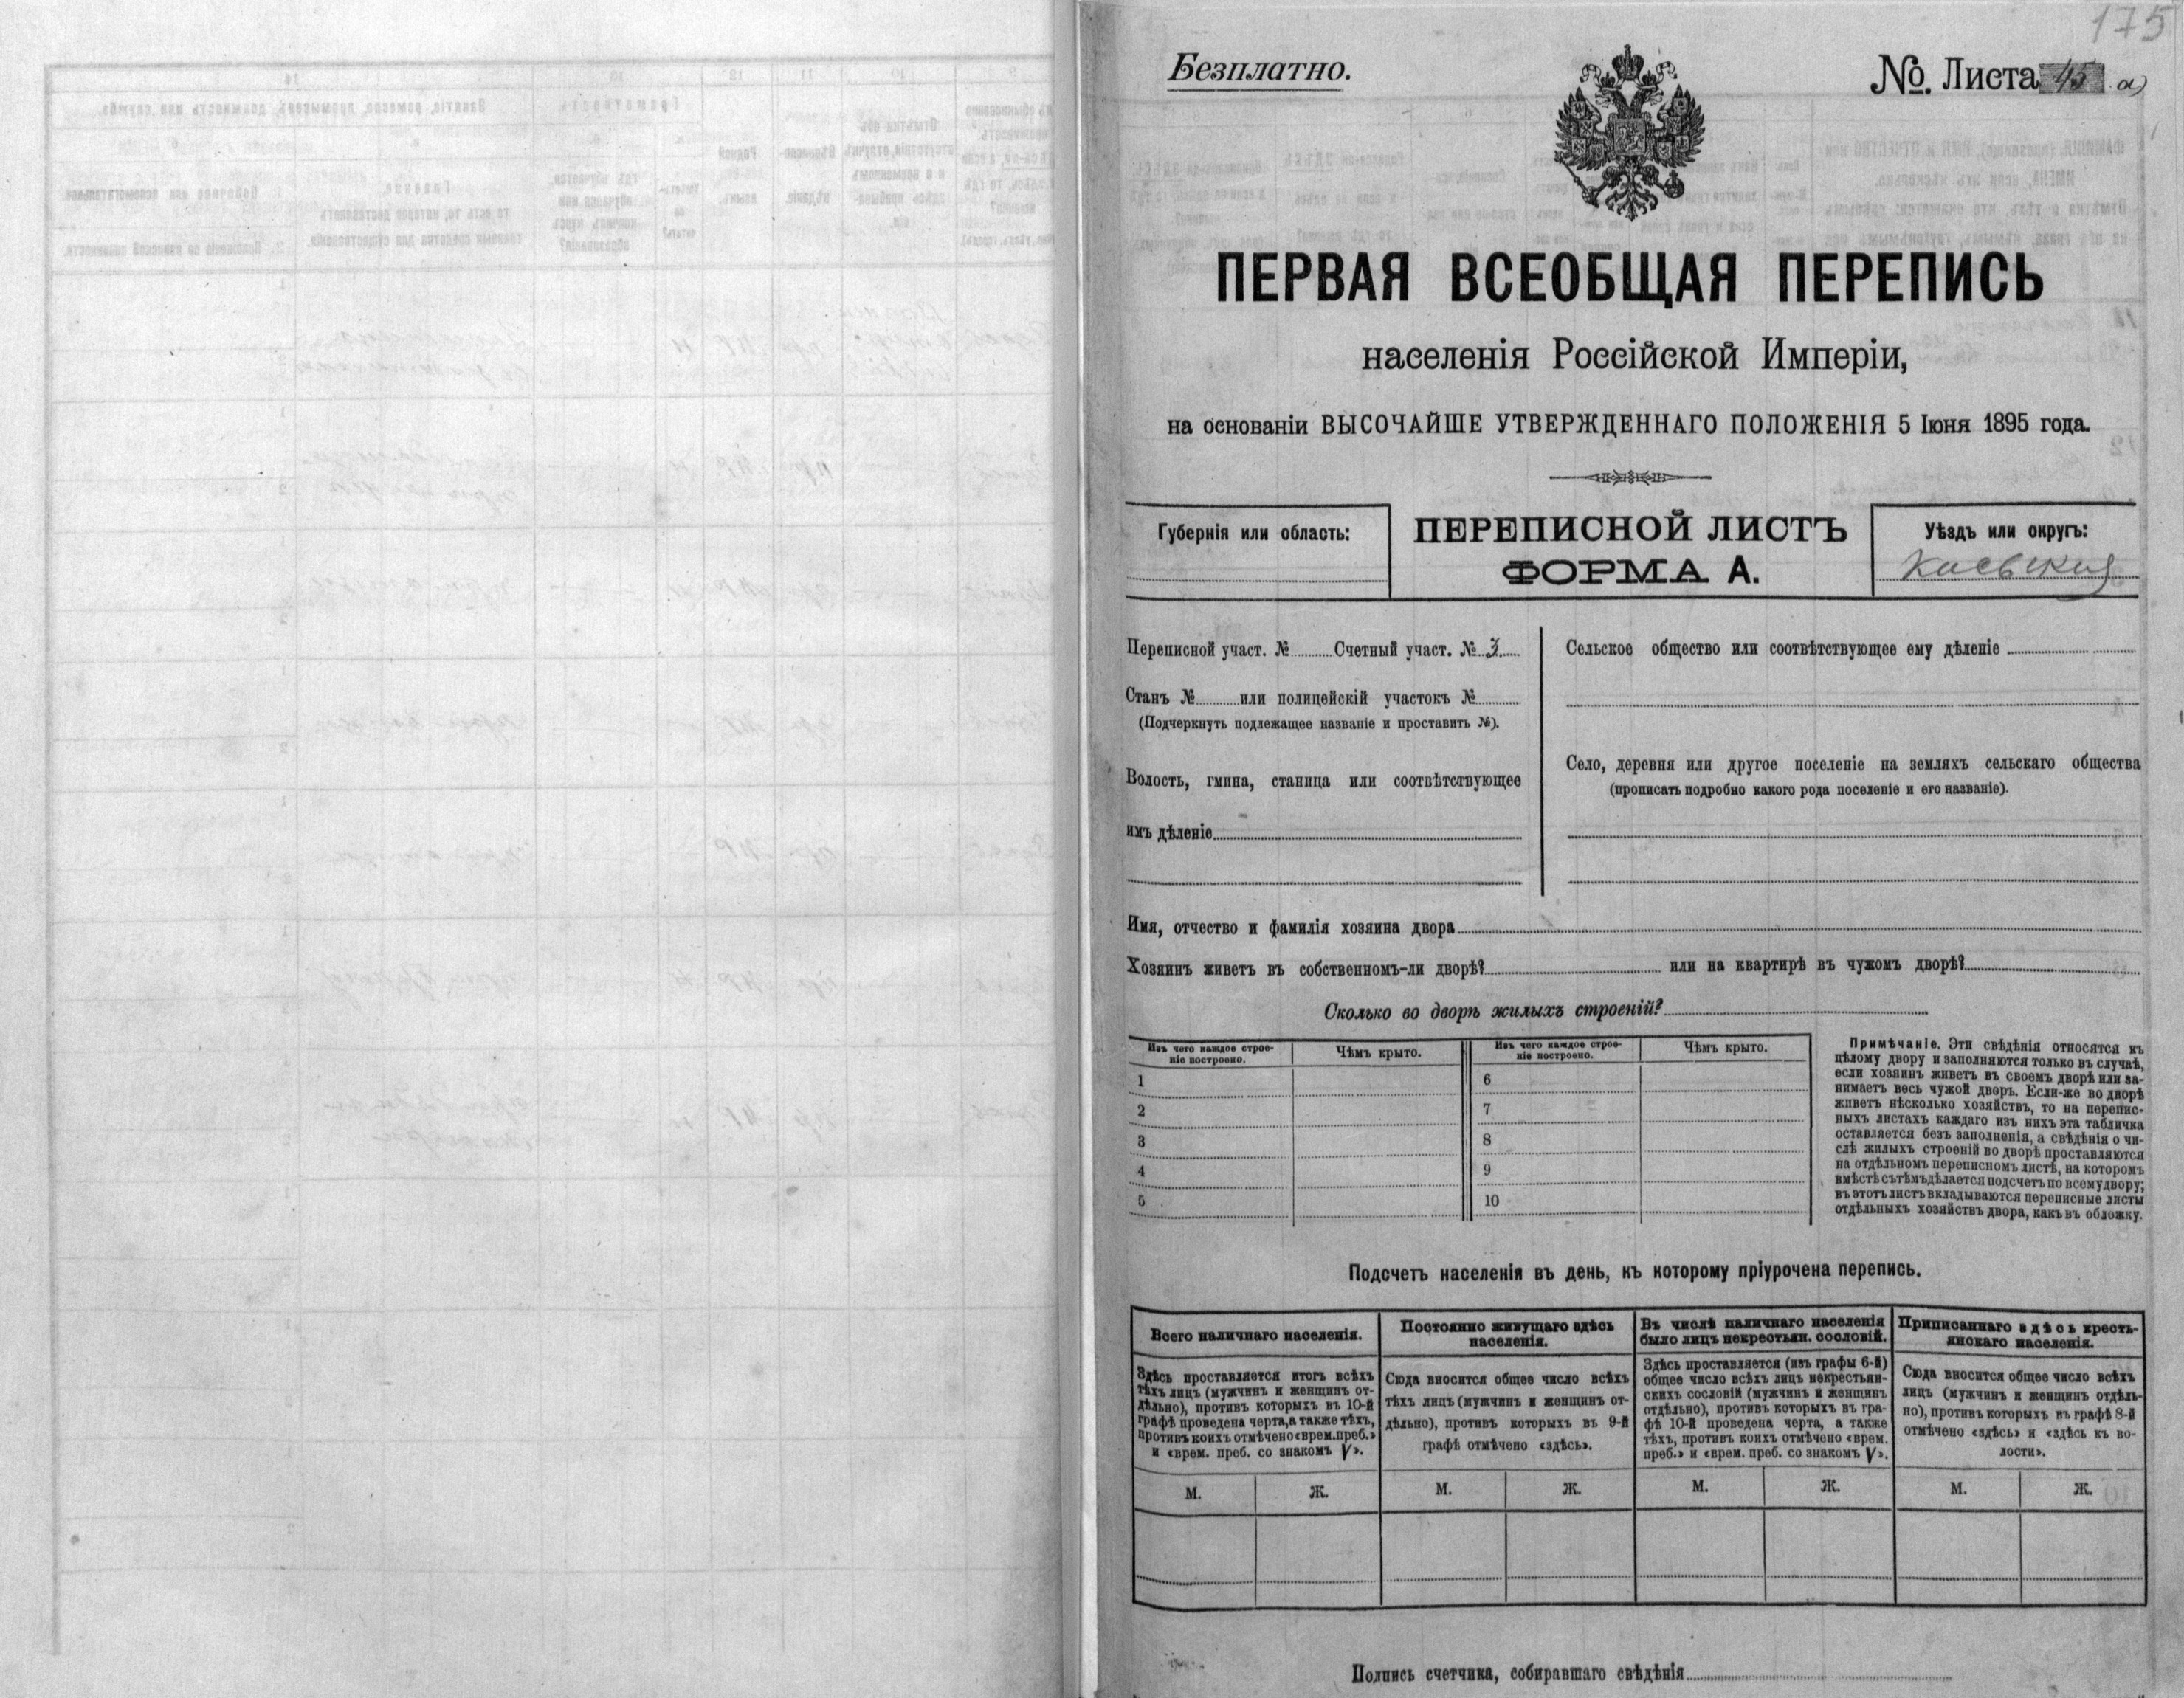 175
Безплатно.
№. Листа 45 а)
ПЕРВАЯ ВСЕОБЩАЯ ПЕРЕПИСЬ
населенія Россійской Имперіи,
на основаніи ВЫСОЧАЙШЕ УТВЕРЖДЕННАГО ПОЛОЖЕНІЯ 5 Іюня 1895 года.
Губернія или область:
ПЕРЕПИСНОЙ ЛИСТЪ
ФОРМА А.
Уѣздъ или округъ:
Кіевскій
Переписной участ. № Счетный участ. № 3
Станъ № или полицейскій участокъ №
(Подчеркнуть подлежащее названіе и проставить №).
Волость, гмина, станица или соотвѣтствующее
имъ дѣленіе
Сельское общество или соотвѣтствующее ему дѣленіе
Село, деревня или другое поселеніе на земляхъ сельскаго общества
(прописать подробно какого рода поселеніе и его названіе).
Имя, отчество и фамилія хозяина двора
Хозяинъ живетъ въ собственномъ-ли дворѣ? или на квартирѣ въ чужомъ дворѣ?
Сколько во дворѣ жилыхъ строеній?
Изъ чего каждое строе-
ніе построено.
Чѣмъ крыто.
Изъ чего каждое строе-
ніе построено.
Чѣмъ крыто.
1
2
3
4
5
6
7
8
9
10
Примѣчаніе. Эти свѣдѣнія относятся къ
цѣлому двору и заполняются только въ случаѣ,
если хозяинъ живетъ въ своемъ дворѣ или за-
нимаетъ весь чужой дворъ. Если-же во дворѣ
живетъ нѣсколько хозяйствъ, то на перепис-
ныхъ листахъ каждаго изъ нихъ эта табличка
оставляется безъ заполненія, а свѣдѣнія о чи-
слѣ жилыхъ строеній во дворѣ проставляются
на отдѣльномъ переписномъ листѣ, на которомъ
вмѣстѣ съ тѣмъ дѣлается подсчетъ по всему двору;
въ этотъ листъ вкладываются переписные листы
отдѣльныхъ хозяйствъ двора, какъ въ обложку.
Подсчетъ населенія въ день, къ которому пріурочена перепись.
Всего наличнаго населенія.
Здѣсь проставляется итогъ всѣхъ
тѣхъ лицъ (мужчинъ и женщинъ от-
дѣльно), противъ которыхъ въ 10-й
графѣ проведена черта, а также тѣхъ,
противъ коихъ отмѣчено «врем. преб.»
и «врем. преб. со знакомъ V».
М. Ж.
Постоянно живущаго здѣсь
населенія.
Сюда вносится общее число всѣхъ
тѣхъ лицъ (мужчинъ и женщинъ от-
дѣльно), противъ которыхъ въ 9-й
графѣ отмѣчено «здѣсь».
М. Ж.
Въ числѣ наличнаго населенія
было лицъ некрестьян. сословій.
Здѣсь проставляется (изъ графы 6-й)
общее число всѣхъ лицъ некрестьян-
скихъ сословій (мужчинъ и женщинъ
отдѣльно), противъ которыхъ въ гра-
фѣ 10-й проведена черта, а также
тѣхъ, противъ коихъ отмѣчено «врем.
преб.» и «врем. преб. со знакомъ V».
М. Ж.
Приписаннаго здѣсь кресть-
янскаго населенія.
Сюда вносится общее число всѣхъ
лицъ (мужчинъ и женщинъ отдѣль-
но), противъ которыхъ въ графѣ 8-й
отмѣчено «здѣсь» и «здѣсь къ во-
лости».
М. Ж.
Подпись счетчика, собиравшаго свѣдѣнія